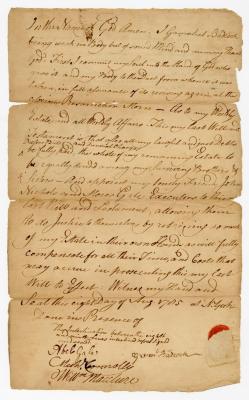 In the Name of God Amen. I Gershom Bradock
being weak in Body but of sound Mind and memory thank
God. First I commit my Soul into the Hands of God who
gave it and my Body to the Dust from whence it was
taken, in full assurance of its rising again at the
glorious Resurrection Morn — As to my Worldly
Estate and all Worldly Affairs This my last Will and
Testament is that after all my Lawful and just Debts
be fully paid the whole of my remaining Estate to
be equally divided among my Brothers &
Sisters — And appoint my Friends John
Nichols and Moses Gale Executors to this
Last Will and Testament, allowing them
to do Justice to themselves by retaining so much
of my Estate in their own hand as will fully
compensate for all their Time, and Cost that
may accrue in prosecuting this my last
Will to Effect — Witness my Hand and
Seal this eight day of Aug 1785 at N. York
Done in Presence of
The between the eight
and lines inserted before signed
Abel Gale